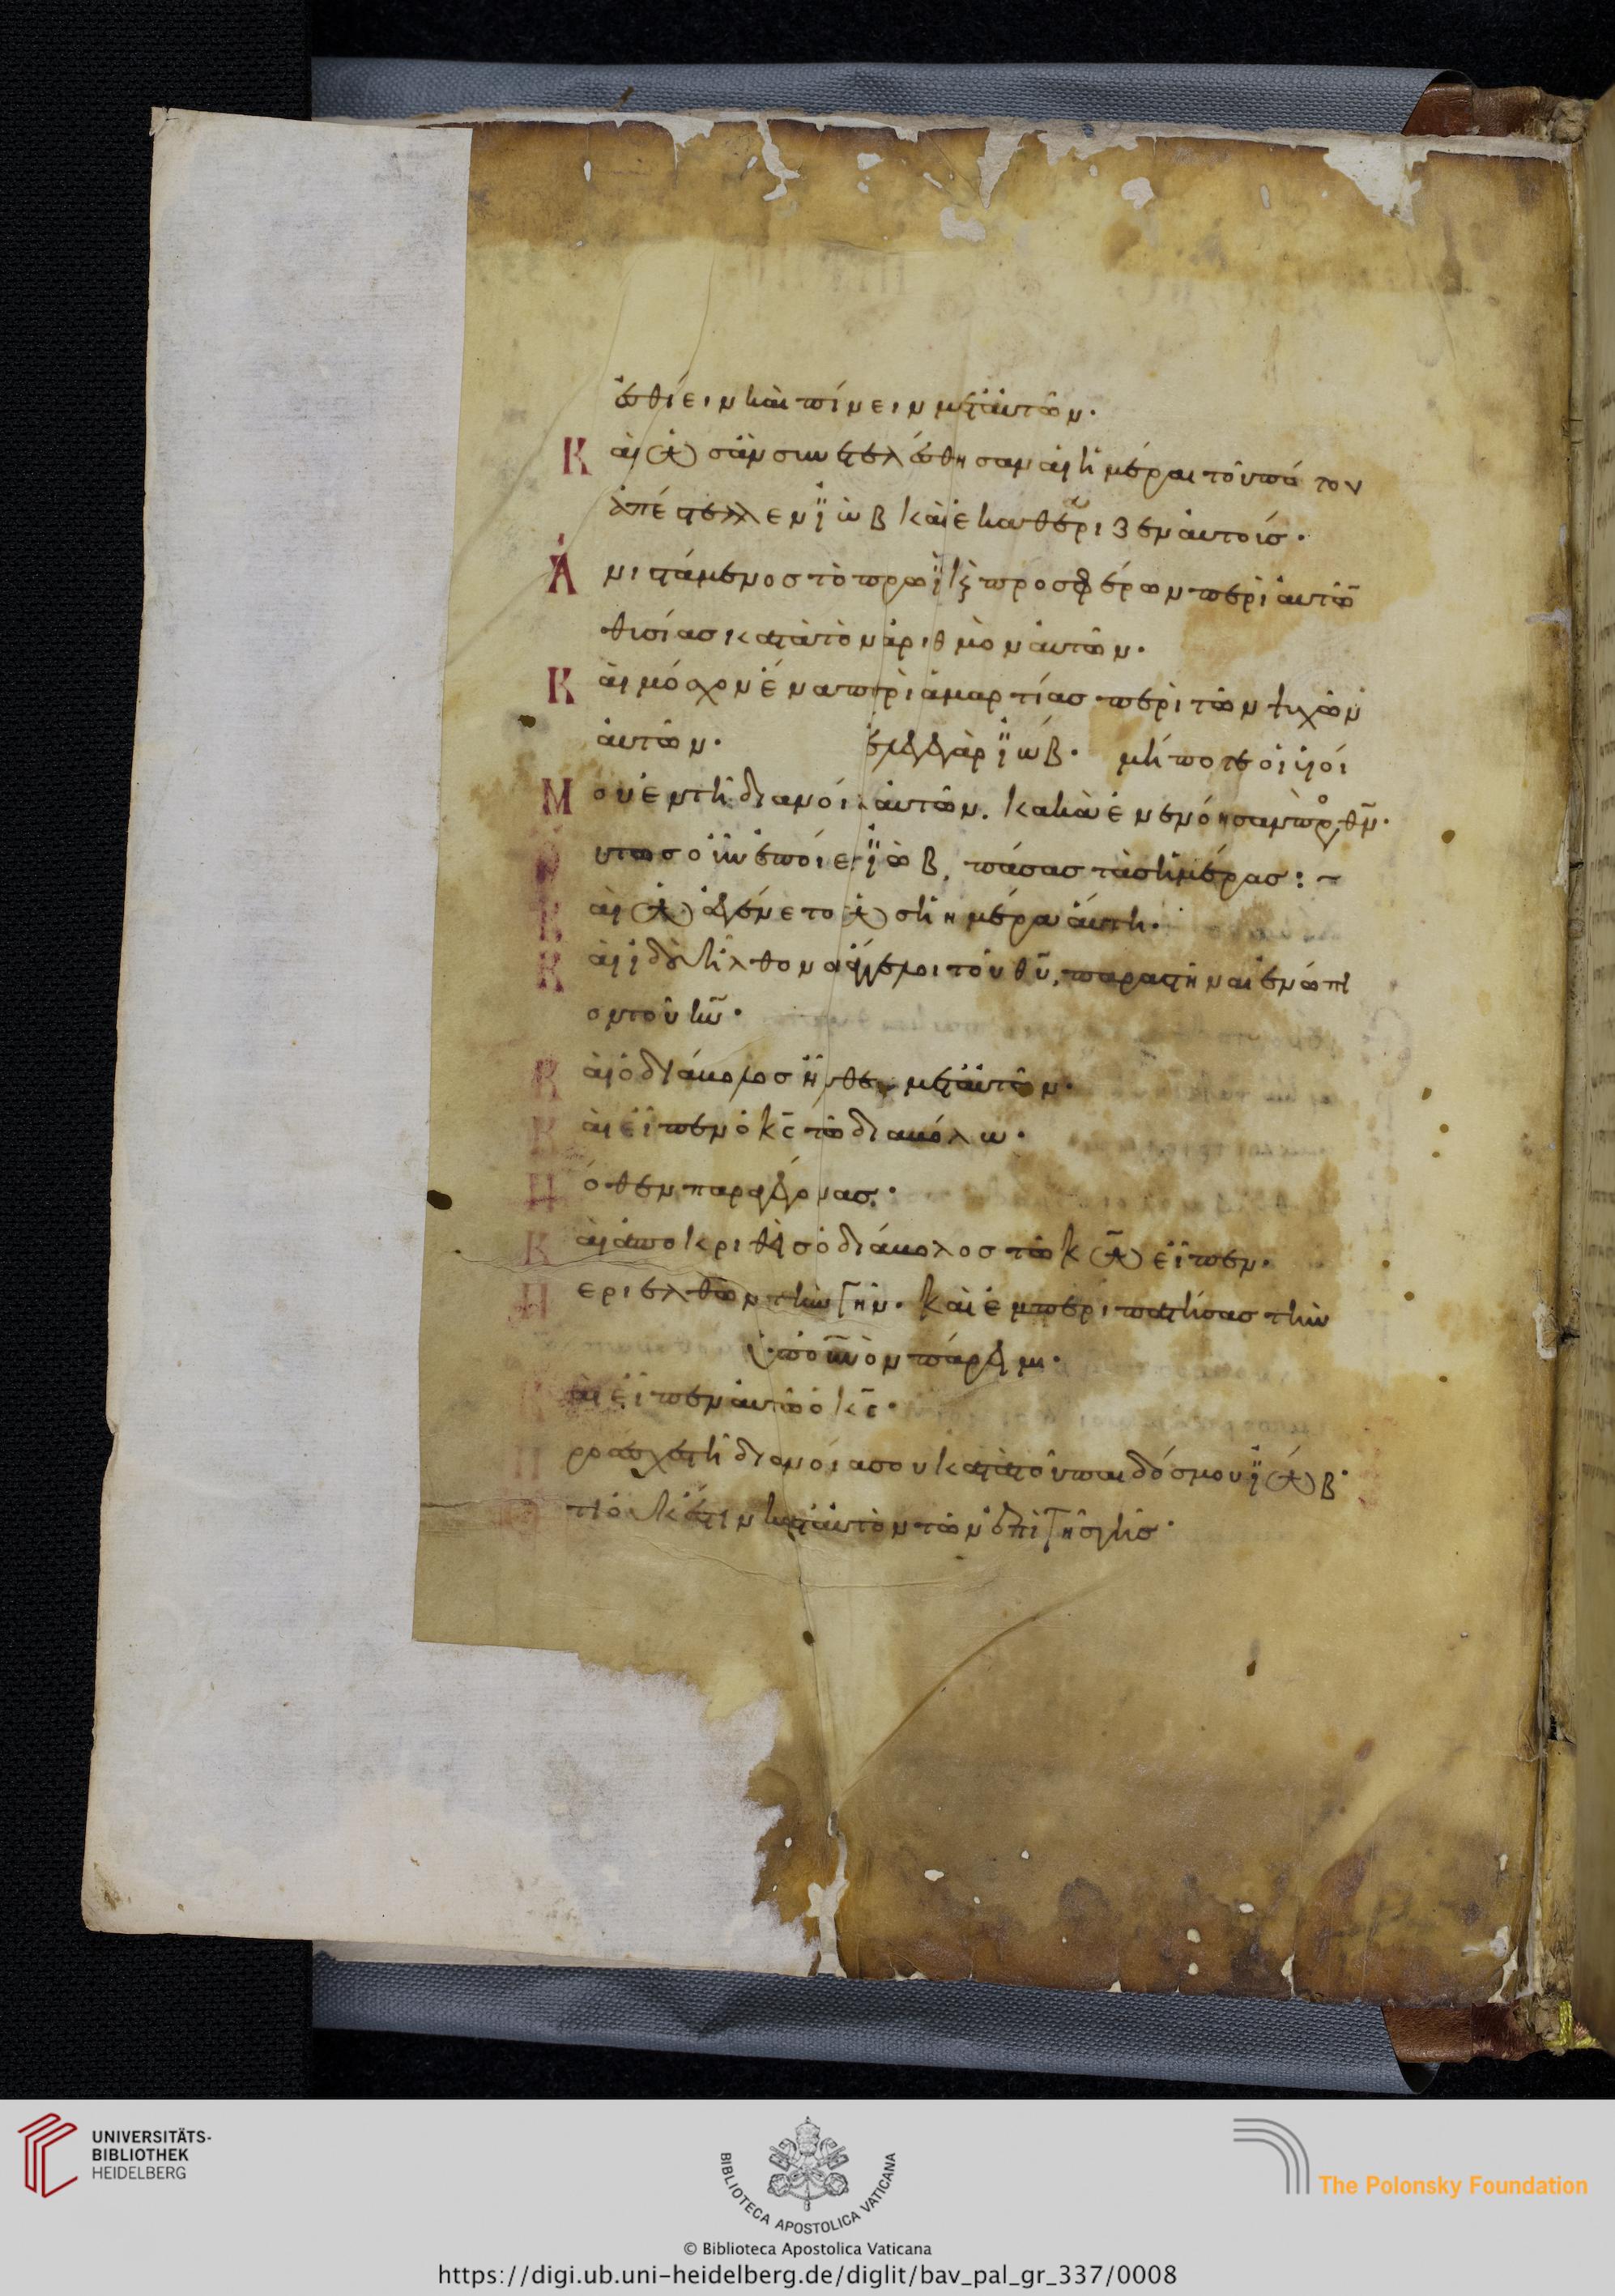 ἐσθίειν καὶ πίνειν μετ' αὐτῶν.
Καὶ ὡς ἂν συνετελέσθησαν αἱ ἡμέραι τοῦ πότου
ἀπέστελλεν ἰὼβ καὶ ἐκαθέριζεν αὐτοίσ.
Ἀνιστάμενος τὸ πρωῒ καὶ προσφέρων περὶ αὐτῶν
θυσίας κατὰ τὸν ἀριθμὸν αὐτῶν.
Καὶ μόσχον ἕνα περὶ ἁμαρτίας περὶ τῶν ψυχῶν
αὐτῶν. ἔλεγε γὰρ ἰώβ. μήποτε οἱ υἱοί
Μου ἐν τῇ διανοίᾳ αὐτῶν. κακὰ ἐνενόησαν πρὸς θν.
Οὕτως οὖν ἐποίει ἰὼβ, πάσας τὰς ἡμέρας:~
Καὶ ἐγένετο ὡς ἡ ημέρα αὕτη.
Καὶ ἰδοὺ ἦλθον οἱ ἄγγελοι τοῦ θυ, παραστῆναι ἐνώπι
ον τοῦ κυ.
Καὶ ὁ διάβολος ἦλθεν μετ' αὐτῶν.
Καὶ εἶπεν ὁ κς τῶ διαβόλω.
Πόθεν παραγέγονας.
Καὶ ἀποκριθεὶς ὁ διάβολος τῶ κω εἶπεν.
Περιελθὼν τὴν γῆν. καὶ ἐμπεριπατήσας τὴν
ὑπ' οὐνὸν πάρειμι.
Καὶ εἶπεν αὐτῶ ὁ κς.
Προσέσχες τῇ διανοίᾳ σου κατὰ τοῦ παιδός μου ἰώβ.
Ὅτι οὐκ ἔστιν κατ' αὐτὸν τῶν ἐπὶ γῆς γῆς.
UNIVERSITÄTS-
BIBLIOTHEK
HEIDELBERG
BIBLIOTECA APOSTOLICA VATICANA
The Polonsky Foundation
© Biblioteca Apostolica Vaticana
https://digi.ub.uni-heidelberg.de/diglit/bav_pal_gr_337/0008